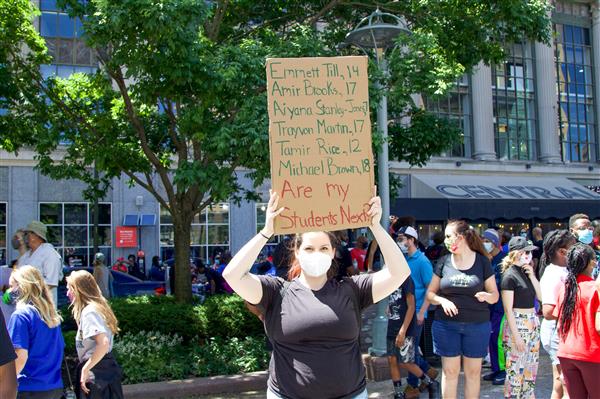 Emmett Till, 14
Amir Brooks, 17
Aiyana Stanley-Jones, 7
Trayvon Martin, 17
Tamir Rice, 12
Michael Brown, 18
Are my
Students Next?
CENTRAL